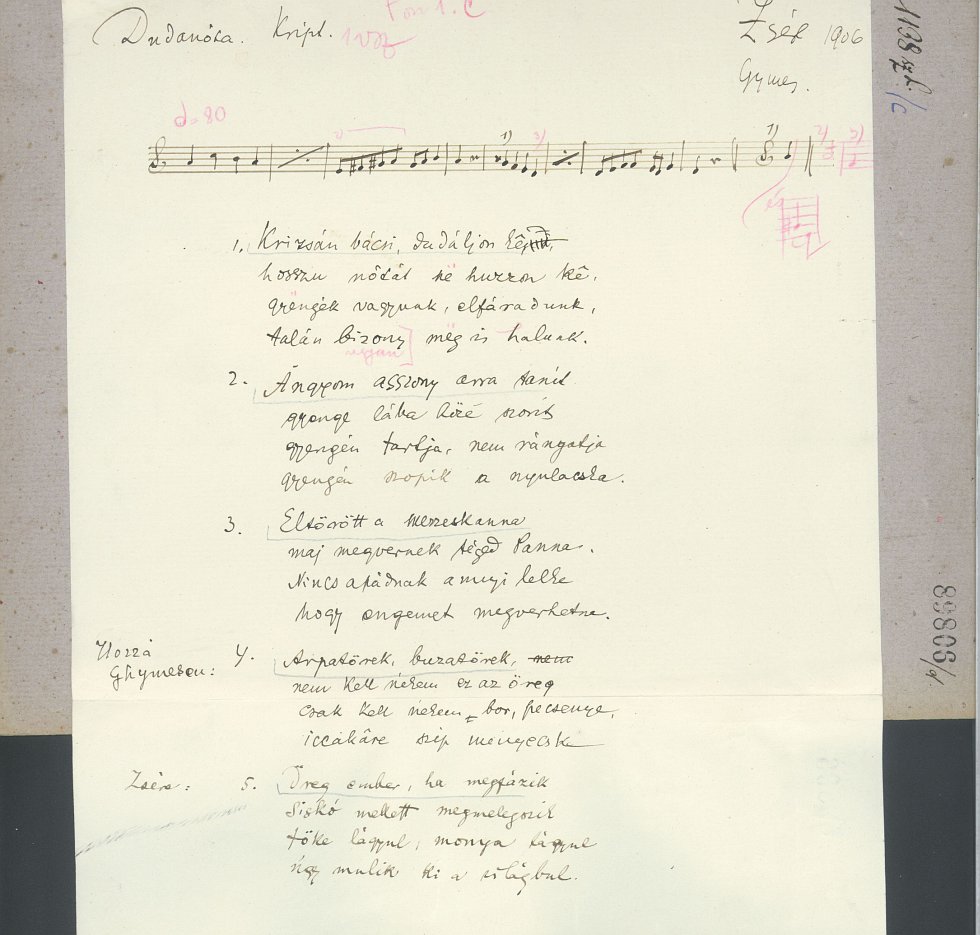 Dudanóta. Kript.
Fon 1. C
Zsér 1906
Gymes.
1138 sz.
/C
♩=80
2)
1)
3)
1)
2)
3)
és
1. Krizsán bácsi, dudáljon kê
hosszu nótát në huzzon kê,
gyëngék vagyunk, elfáradunk,
talán bizony mëg is halunk.
2. Ángyom asszony arra tanít
gyenge lába közé szorít
gyengén tartja, nem rángatja
gyengén szopik a nyulacska.
3. Eltörött a mezeskanna
maj megvernek téged Panna.
Nincs apádnak annyi lelke
hogy engemet megverhetne.
Hozzá
Ghymesen:
4. Árpatörek, buzatörek, nem
nem kell nékem ez az öreg
csak kell nékem bor, pecsenye,
iccakáre szip menyecske
Zsére:
5. Öreg ember, ha megfázik
Siskó mellett megmelegszik
tőke lágyul, monya tágyul
úgy mulik ki a világbul.
89808/d